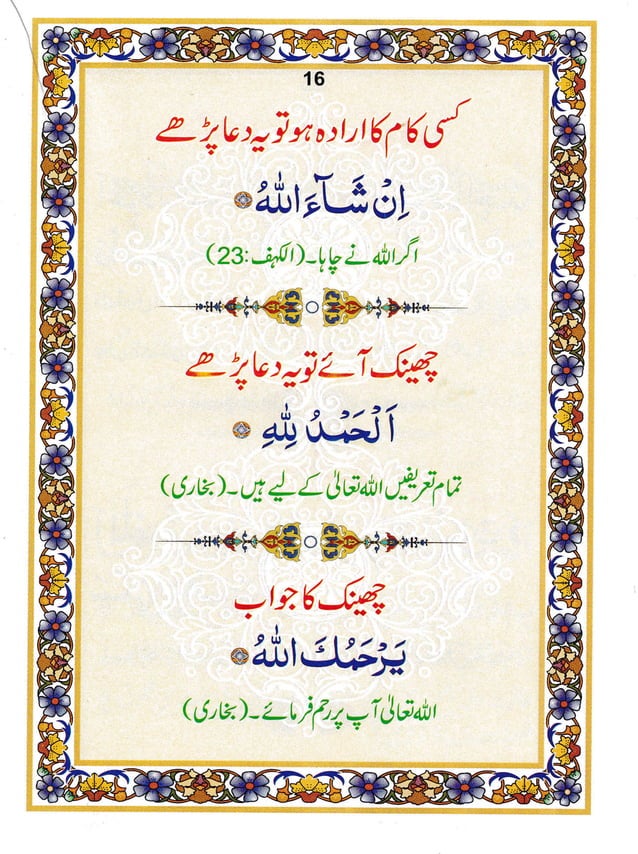 16
کسی کام کا ارادہ ہو تو یہ دعا پڑھے
اِنْ شَآءَ اللّٰهُ
اگر اللہ نے چاہا۔ (الکہف:23)
چھینک آئے تو یہ دعا پڑھے
اَلْحَمْدُ لِلّٰهِ
تمام تعریفیں اللہ تعالیٰ کے لیے ہیں۔ (بخاری)
چھینک کا جواب
يَرْحَمُكَ اللّٰهُ
اللہ تعالیٰ آپ پر رحم فرمائے۔ (بخاری)